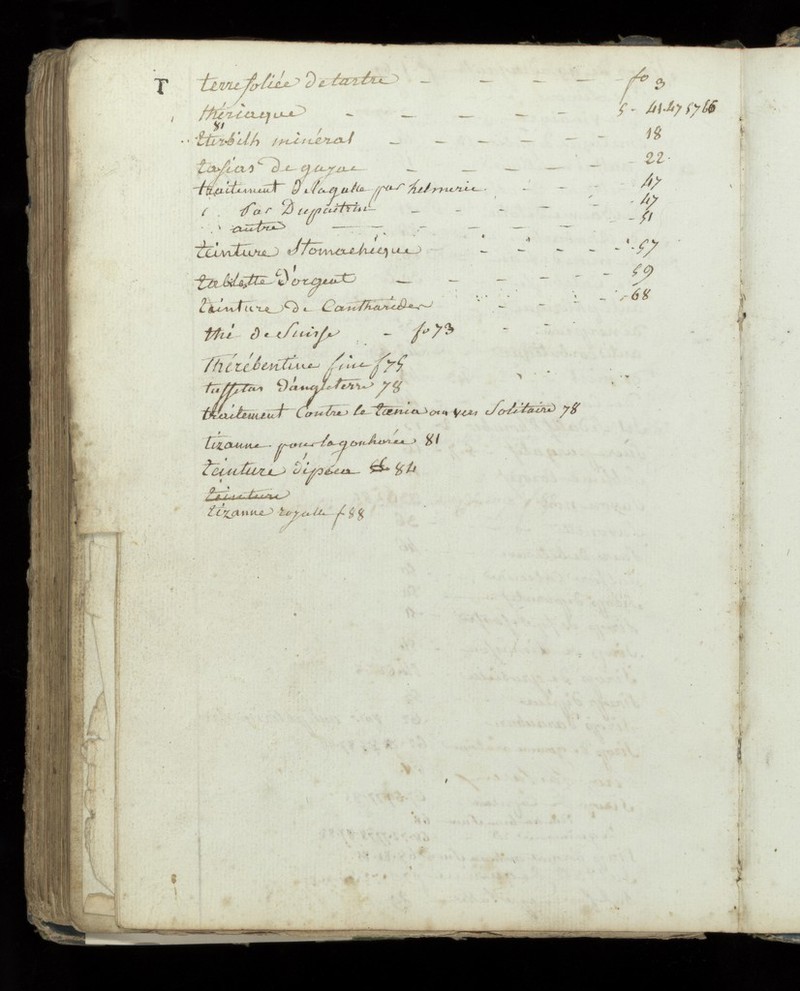 T terre foliée de tartre - - - - - fo 3
thériaque - - - - - 5 - 41.47 57 66
81
turbith minéral - - - - - 18
tafias de gayac - - - - - 22
traitement de la galle par helmerie - - - 47
par Dupastrin - - - - 47
autre - - - - - - 51
teinture Stomachique - - - - - 57
tablette d'orgeat - - - - - - 59
teinture de Cantharides - - - - 68
thé de Suisse - fo 73 - -
Thérébentine fine f 75
taffetas d'angleterre 78
traitement Contre le tænia ou vers Solitaire 78
tizanne pour la gonhorée 81
teinture d'ipéca 84
teinture
tizanne royalle f 88